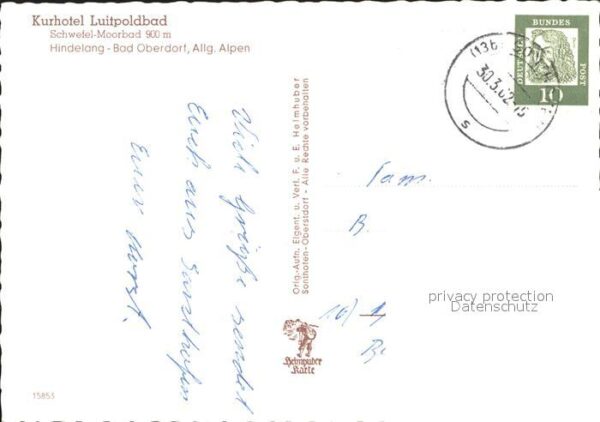 Kurhotel Luitpoldbad
Schwefel-Moorbad 900 m
Hindelang - Bad Oberdorf, Allg. Alpen
DEUTSCHE
BUNDES
POST
10
(13b
30.3.62
s
Viele Grüße sendet
Euch aus Sonthofen
Euer
Orig.-Aufn. Eigent. u. Verl. F. u. E. Heimhuber
Sonthofen-Oberstdorf - Alle Rechte vorbehalten
Fam.
B.
privacy protection
Datenschutz
Heimhuber
Karte
15853